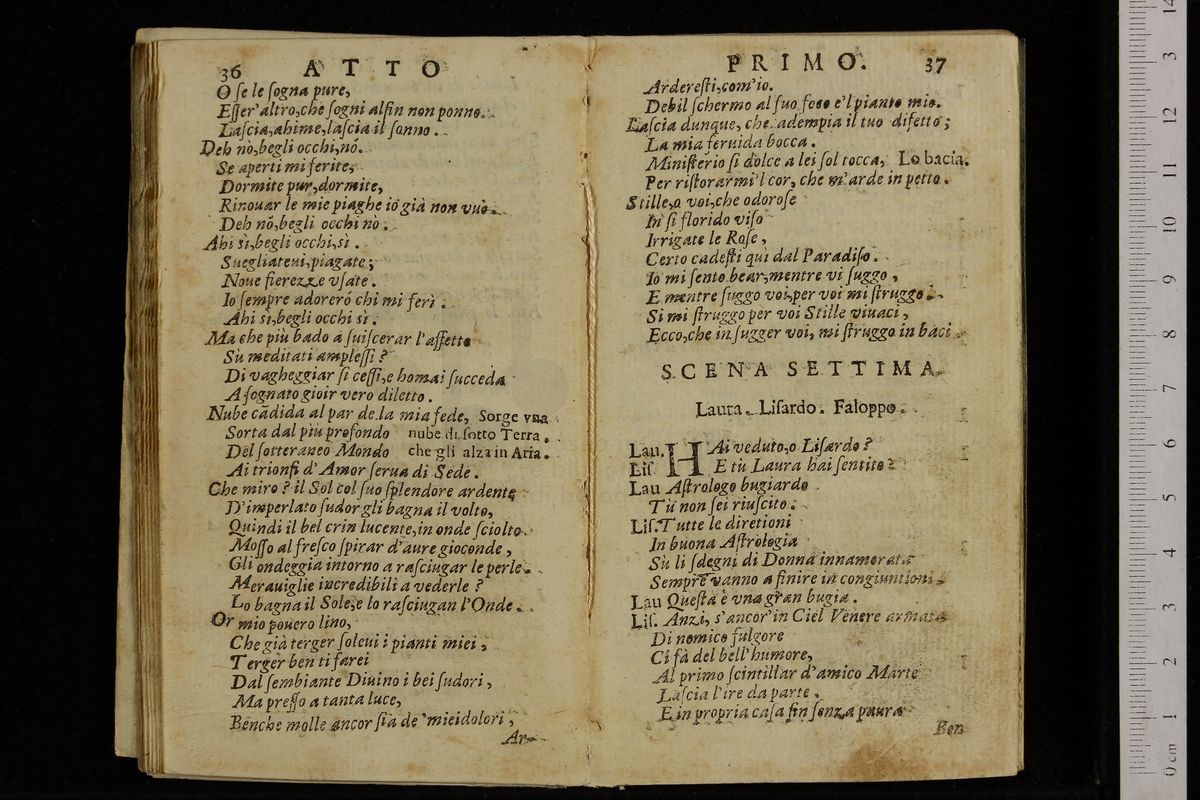 36 ATTO
O ſe le ſogna pure,
Eſſer' altro,che ſogni alfin non ponno.
Laſcia,ahime,laſcia il ſonno.
Deh nò,begli occhi,nò.
Se aperti mi ferite,
Dormite pur,dormite,
Rinouar le mie piaghe iò già non vuò.
Deh nò,begli occhi nò.
Ahi sì,begli occhi,sì.
Suegliateui,piagate;
Noue fierezze vſate.
Io ſempre adorerò chi mi ferì.
Ahi sì,begli occhi sì.
Ma che più bado a ſuiſcerar l'affetto
Sù meditati ampleſſi?
Di vagheggiar ſi ceſſi,e homai ſucceda
A ſognato gioir vero diletto.
Nube cãdida al par de la mia fede, Sorge vna
Sorta dal più profondo nube di ſotto Terra,
Del ſotteraneo Mondo che gli alza in Aria.
Ai trionfi d' Amor ſerua di Sede.
Che miro? il Sol col ſuo ſplendore ardente
D'imperlato ſudor gli bagna il volto,
Quindi il bel crin lucente,in onde ſciolto
Moſſo al freſco ſpirar d'aure gioconde,
Gli ondeggia intorno a raſciugar le perle.
Merauiglie incredibili a vederle?
Lo bagna il Sole,e lo raſciugan l'Onde.
Or mio pouero lino,
Che già terger ſoleui i pianti miei,
Terger ben ti farei
Dal ſembiante Diuino i bei ſudori,
Ma preſſo a tanta luce,
Benche molle ancor ſia de' miei dolori,
Ar-
PRIMO. 37
Ardereſti,com'io.
Debil ſchermo al ſuo foco e'l pianto mio.
Laſcia dunque, che adempia il tuo difetto;
La mia feruida bocca.
Miniſterio ſi dolce a lei ſol tocca, Lo bacia.
Per riſtorarmi'l cor, che m'arde in petto.
Stille,o voi,che odoroſe
In ſi florido viſo
Irrigate le Roſe,
Certo cadeſti quì dal Paradiſo.
Io mi ſento bear,mentre vi ſuggo,
E mentre ſuggo voi,per voi mi ſtruggo.
Si mi ſtruggo per voi Stille viuaci,
Ecco,che in ſugger voi, mi ſtruggo in baci.
SCENA SETTIMA.
Laura. Liſardo. Faloppo.
Lau. HAi veduto,o Liſardo?
Liſ. E tù Laura hai ſentito?
Lau Aſtrologo bugiardo
Tù non ſei riuſcito.
Liſ. Tutte le diretioni
In buona Aſtrologia
Sù li ſdegni di Donna innamorata
Sempre vanno a finire in congiuntioni.
Lau Queſta è vna gran bugia.
Liſ. Anzi, s'ancor'in Ciel Venere armata
Di nemico fulgore
Ci fà del bell'humore,
Al primo ſcintillar d'amico Marte
Laſcia l'ire da parte,
E in propria caſa fin ſenza paura
Ben
14
3
12
11
10
9
8
7
6
5
4
3
2
1
0 cm